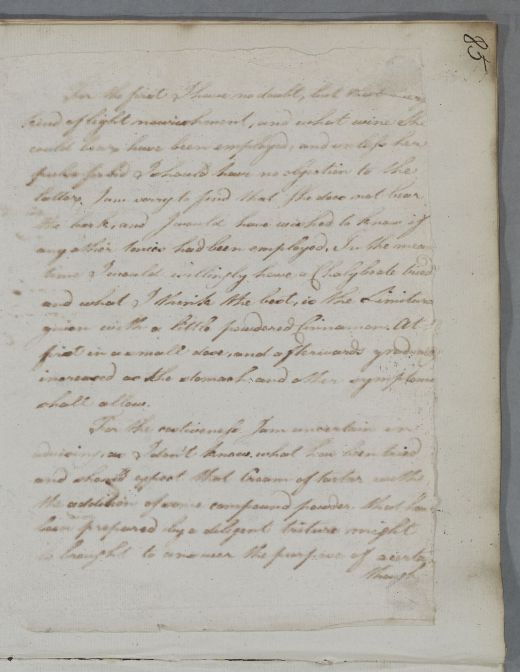 85
For the first I have no doubt, but that every
kind of light nourishment, and what wine She
could bear have been employed, and unless her
pulse forbid I should have no objection to the
latter, I am sorry to find that She does not bear
the bark, and I would have wished to know if
any other tonics had been employed. In the mean
time I would willingly have a Chalybeate tried
and what I think the best, is the Limatura
given with a little powdered Cinnamon. At
first in a small dose, and afterwards gradually
increased as the stomach and other symptoms
shall allow.
For the costiveness I am uncertain in
advising, as I don't know what has been tried
and should expect that Cream of tartar with
the addition of some compound powder that has
been prepared by a diligent triture might
be brought to answer the purpose of a certain
though